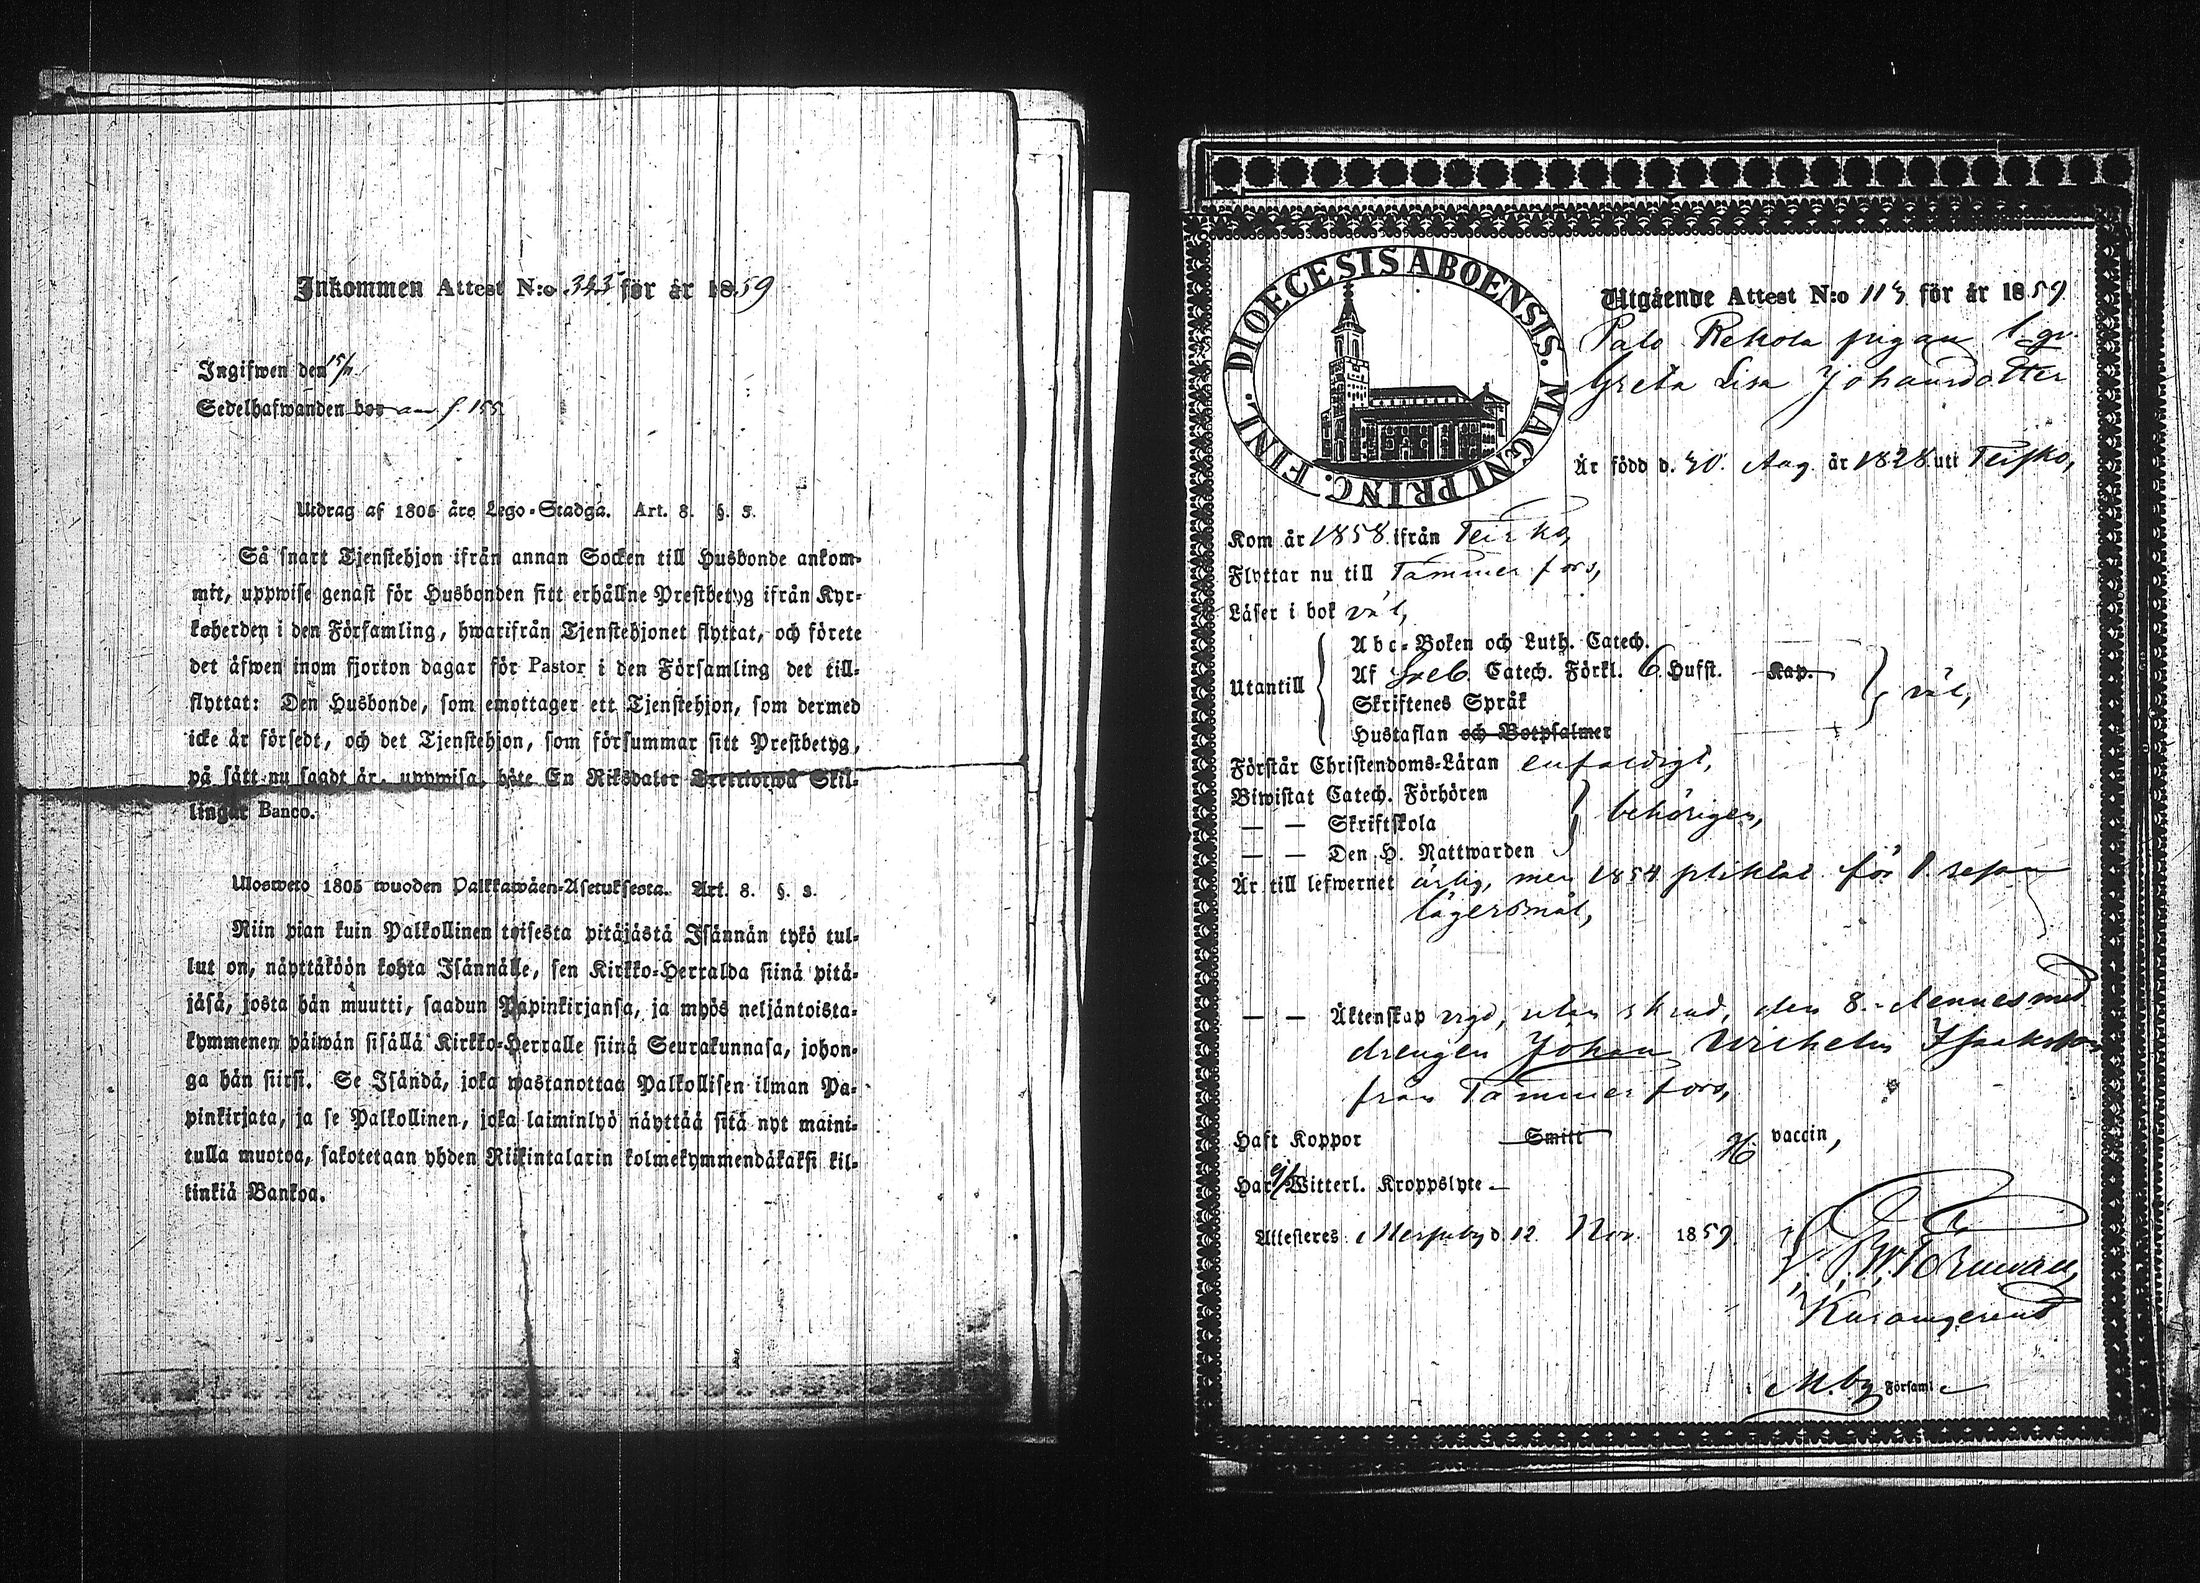 Inkommen Attest N:o 343 för år 1859
Ingifwen den 15/11
Sedelhafwanden bor an f. 155.
Utdrag af 1805 års Lego-Stadga. Art. 8. §. 3.
Så snart Tjenstehjon ifrån annan Socken till Husbonde ankom-
mit, uppwise genast för Husbonden sitt erhållne Prestbetyg ifrån Kyr-
koherden i den Församling, hwarifrån Tjenstehjonet flyttat, och förete
det äfwen inom fjorton dagar för Pastor i den Församling det till-
flyttat: Den Husbonde, som emottager ett Tjenstehjon, som dermed
icke är försedt, och det Tjenstehjon, som försummar sitt Prestbetyg,
på sätt nu sagdt är, uppwisa, böte En Riksdaler Trettiotwå Skil-
lingar Banco.
Ulosweto 1805 wuoden Palkkawäen-Asetuksesta. Art. 8. §. 3.
Niin pian kuin Palkollinen toisesta pitäjästä Isännän tykö tul-
lut on, näyttäköön kohta Isännälle, sen Kirkko-Herralda siinä pitä-
jäsä, josta hän muutti, saadun Papinkirjansa, ja myös neljäntoista-
kymmenen päiwän sisällä Kirkko-Herralle siinä Seurakunnasa, johon-
ga hän siirsi. Se Isändä, joka wastanottaa Palkollisen ilman Pa-
pinkirjata, ja se Palkollinen, joka laiminlyö näyttää sitä nyt maini-
tulla muotoa, sakotetaan yhden Riikintalarin kolmekymmendäkaksi kil-
linkiä Bankoa.
DIOECESIS ABOENSIS. MAGNI PRINC. FINL.
Utgående Attest N:o 113 för år 1859
Palo Rekola pigan
Greta Lisa Johansdotter
Är född d. 30. Aug. år 1828 uti Teisko,
Kom år 1858 ifrån Teisko,
Flyttar nu till Tammerfors,
Läser i bok väl,
Utantill
Abc-Boken och Luth. Catech.
Af Sveb. Catech. Förkl. 6 Hufst. Kap.
Skriftenes Språk
Hustaflan och Botpsalmer
väl,
Förstår Christendoms-Läran enfaldigt,
Biwistat Catech. Förhören
— — Skriftskola
— — Den H. Nattwarden
behörigen,
Är till lefwernet ärlig, men 1854 pliktat för 1. resan
lägersmål,
— — Äktenskap vigd, utan skrud, den 8. dennes med
drengen Johan Wilhelm Isaksson
från Tammerfors,
Haft Koppor Smitt H. vaccin,
Har ej Witterl. Kroppslyte —
Attesteres Messuby d. 12 Nov. 1859
M.by Församl.